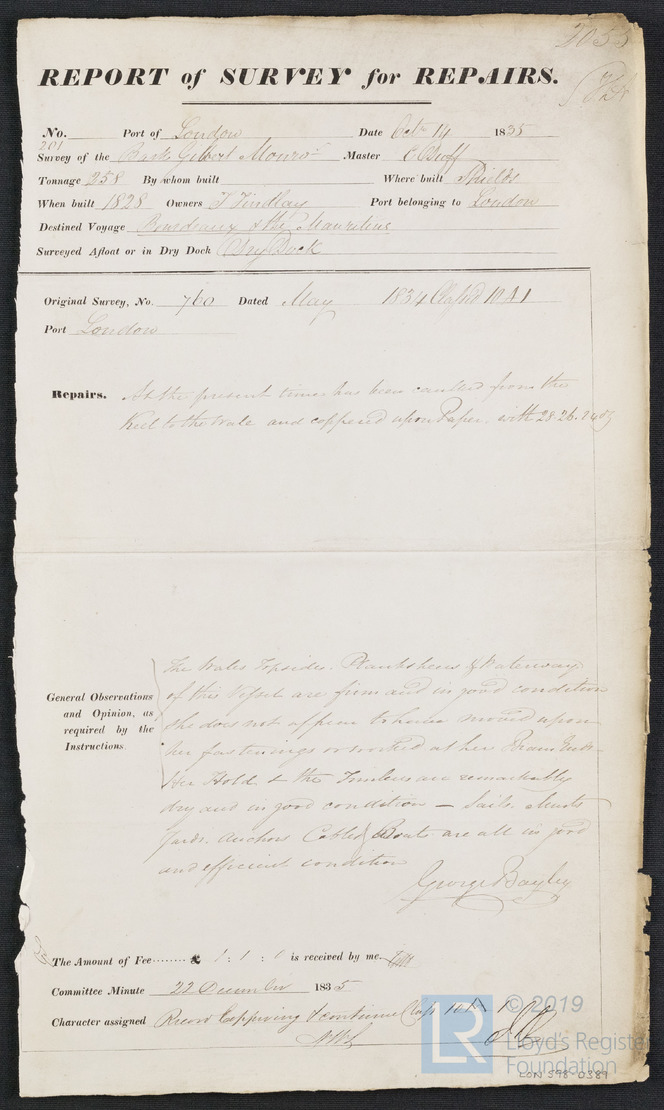 2055
REPORT of SURVEY for REPAIRS.
No. Port of London Date Octr 14 1835
201
Survey of the Bark Gilbert Monro Master C Duff
Tonnage 258 By whom built Where built Shields
When built 1828 Owners J Findlay Port belonging to London
Destined Voyage Bourdeaux & the Mauritius
Surveyed Afloat or in Dry Dock Dry Dock
Original Survey, No. 760 Dated May 1834 Class'd 10 A 1
Port London
Repairs. At the present time has been caulked from the
Keel to the Wale and coppered upon Paper with 28. 26. 24 oz
The Wales Topsides. Planksheers & Waterways
General Observations of this Vessel are firm and in good condition
and Opinion, as she does not appear to have moved upon
required by the her fastenings or worked at her Beam Ends -
Instructions. Her Hold & the Timbers are remarkably
dry and in good condition — Sails Masts
Yards. Anchors Cables & Boats are all in good
and efficient condition
George Bayley
The Amount of Fee........ £ 1 : 1 : 0 is received by me.
Committee Minute 22 December 1835
Character assigned Record Coppering & continue Class 10 A 1
LR © 2019
Lloyd's Register
Foundation
LON 598-0389